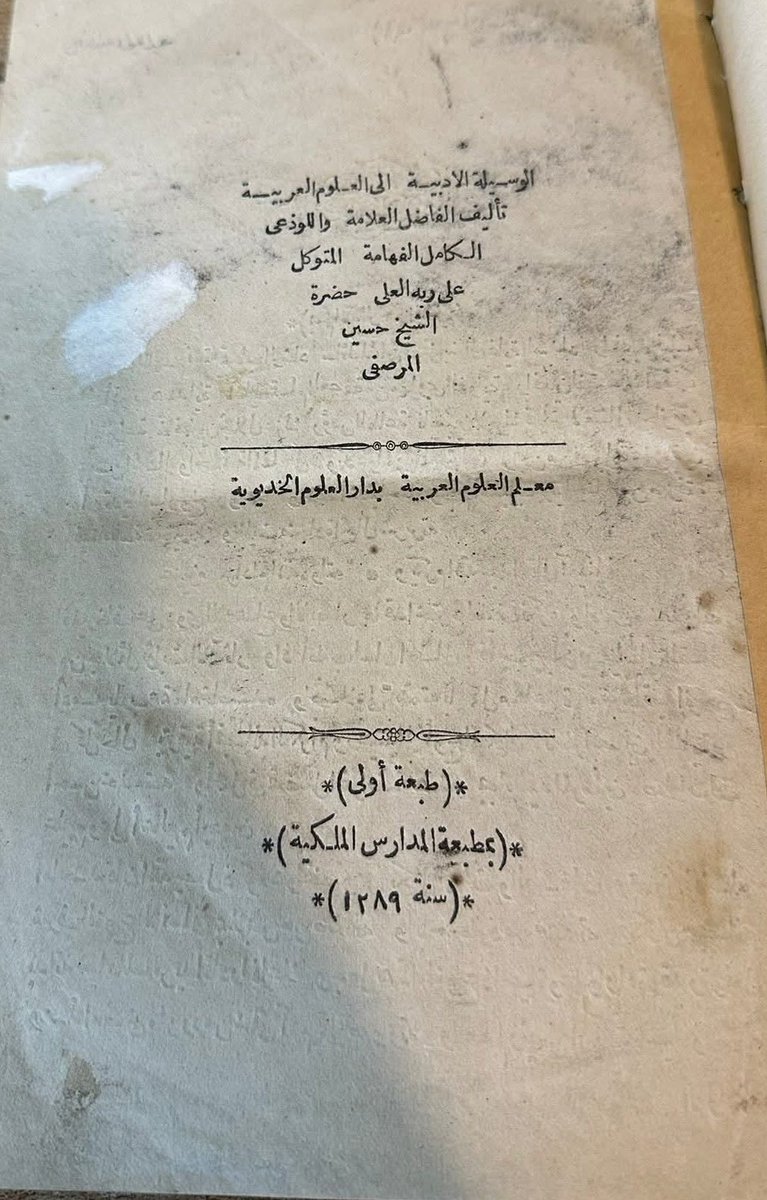 الوسيلة الادبية الى العلوم العربية
تأليف الفاضل العلامة واللوذعى
الكامل الفهامة المتوكل
على ربه العلى حضرة
الشيخ حسين
المرصفى
معلم العلوم العربية بدار العلوم الخديوية
*(طبعة أولى)*
*(بمطبعة المدارس الملكية)*
*(سنة ١٢٨٩)*